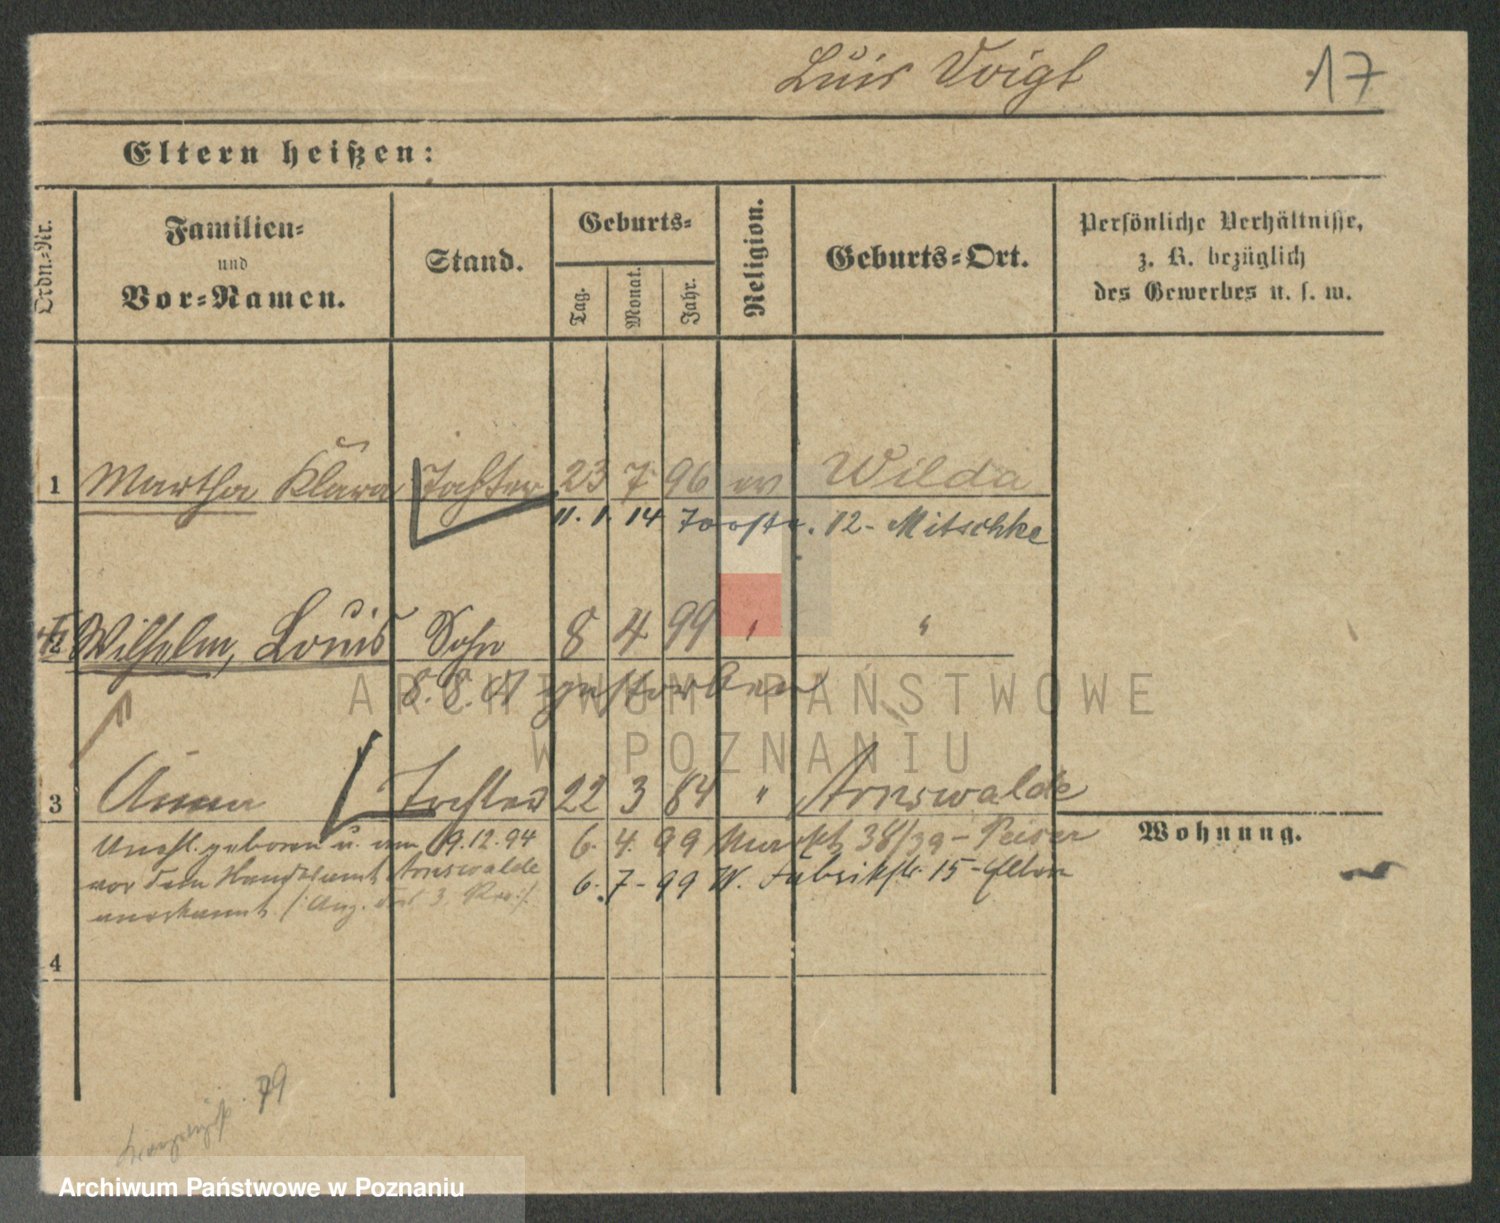 Luis Voigt 17
Eltern heißen:
Ordn.-Nr.
Familien-
und
Vor-Namen.
Stand.
Geburts-
Tag.
Monat.
Jahr.
Religion.
Geburts-Ort.
Persönliche Verhältnisse,
z. B. bezüglich
des Gewerbes u. s. w.
1 Martha Klara Tochter 23 7 96 ev Wilda
11. 1. 14 12 - Mitschke
2 Wilhelm, Louis Sohn 8 4 99 " "
8. 8. 01 gestorben
ARCHIWUM PAŃSTWOWE
W POZNANIU
3 Anna Tochter 22 3 84 " Arnswalde
Unehl. geboren u. am 19.12.94 6. 4. 99 Markt 38/39 - Peiser
vor dem Standesamt Arnswalde 6. 7 - 99 W. Fabrikstr. 15 -
anerkannt
Wohnung.
4
79
Archiwum Państwowe w Poznaniu